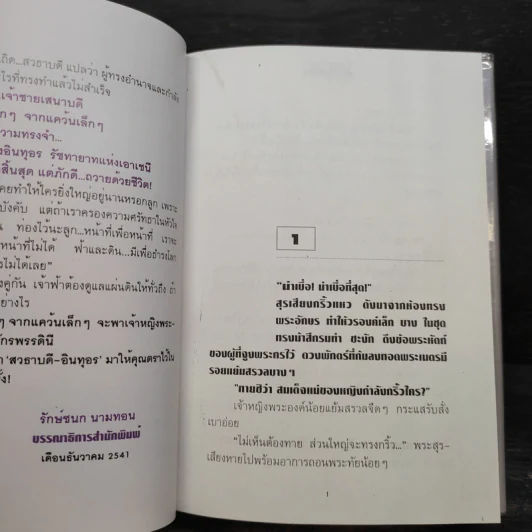 เถิด...สวธาบดี แปลว่า ผู้ทรงอำนาจและกำลัง
ไรที่ทรงทำแล้วไม่สำเร็จ
เจ้าชายเสนาบดี
กๆ จากแคว้นเล็กๆ
ความทรงจำ...
งอินทุอร รัชทายาทแห่งเอาเชนี
สิ้นสุด แต่ภักดี...ถวายด้วยชีวิต!
คยทำให้ใครยิ่งใหญ่อยู่นานหรอกลูก เพราะ
บังคับ แต่ถ้าเราครองความศรัทธาในหัวใจ
น ท่องไว้นะลูก...หน้าที่เพื่อหน้าที่ เราจะ
หน้าที่ไม่ได้ ฟ้าและดิน...มีเพื่อธำรงโลก
รไม่ได้เลย"
งคู่กัน เจ้าฟ้าต้องดูแลแผ่นดินให้ทั่วถึง ถ้า
อย่างไร
กๆ จากแคว้นเล็กๆ จะพาเจ้าหญิงพระ-
ักรพรรดินี
า 'สวธาบดี-อินทุอร' มาให้คุณตราไว้ใน
รั้ง!
รักษ์ชนก นามทอน
บรรณาธิการสำนักพิมพ์
เดือนธันวาคม 2541
1
"น่าเบื่อ! น่าเบื่อที่สุด!"
สุรเสียงกริ้วแหว ดังมาจากห้องทรง
พระอักษร ทำให้วรองค์เล็ก บาง ในชุด
ทรงม้าสีกรมท่า ชะงัก ดึงข้อพระหัตถ์
ของผู้ที่จูงพระกรไว้ ดวงพักตร์ที่ก้มลงทอดพระเนตรมี
รอยแย้มสรวลบางๆ
"ทายซิว่า สมเด็จแม่ของหญิงกำลังกริ้วใคร?"
เจ้าหญิงพระองค์น้อยแย้มสรวลจืดๆ กระแสรับสั่ง
เบาอ่อย
"ไม่เห็นต้องทาย ส่วนใหญ่จะทรงกริ้ว..." พระสุร-
เสียงหายไปพร้อมอาการถอนพระทัยน้อยๆ
1